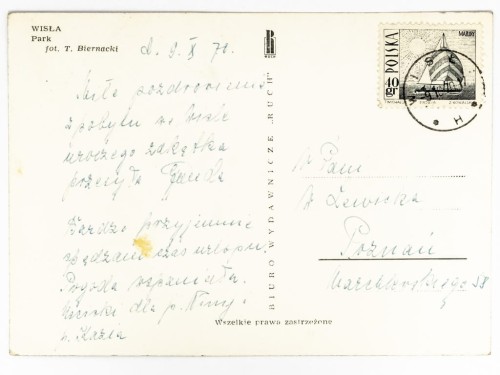 WISŁA
Park
fot. T. Biernacki
d. 9. X 70.
RUCH
Miłe pozdrowienia
z pobytu w
uroczego zakątka
przesyła
Bardzo przyjemnie
spędzam czas urlopu.
Pogoda wspaniała.
dla p. Niny
Kazia
BIURO WYDAWNICZE „RUCH"
Wszelkie prawa zastrzeżone
POLSKA
40 gr
WISŁA
Pani
Lewicka
Poznań
58